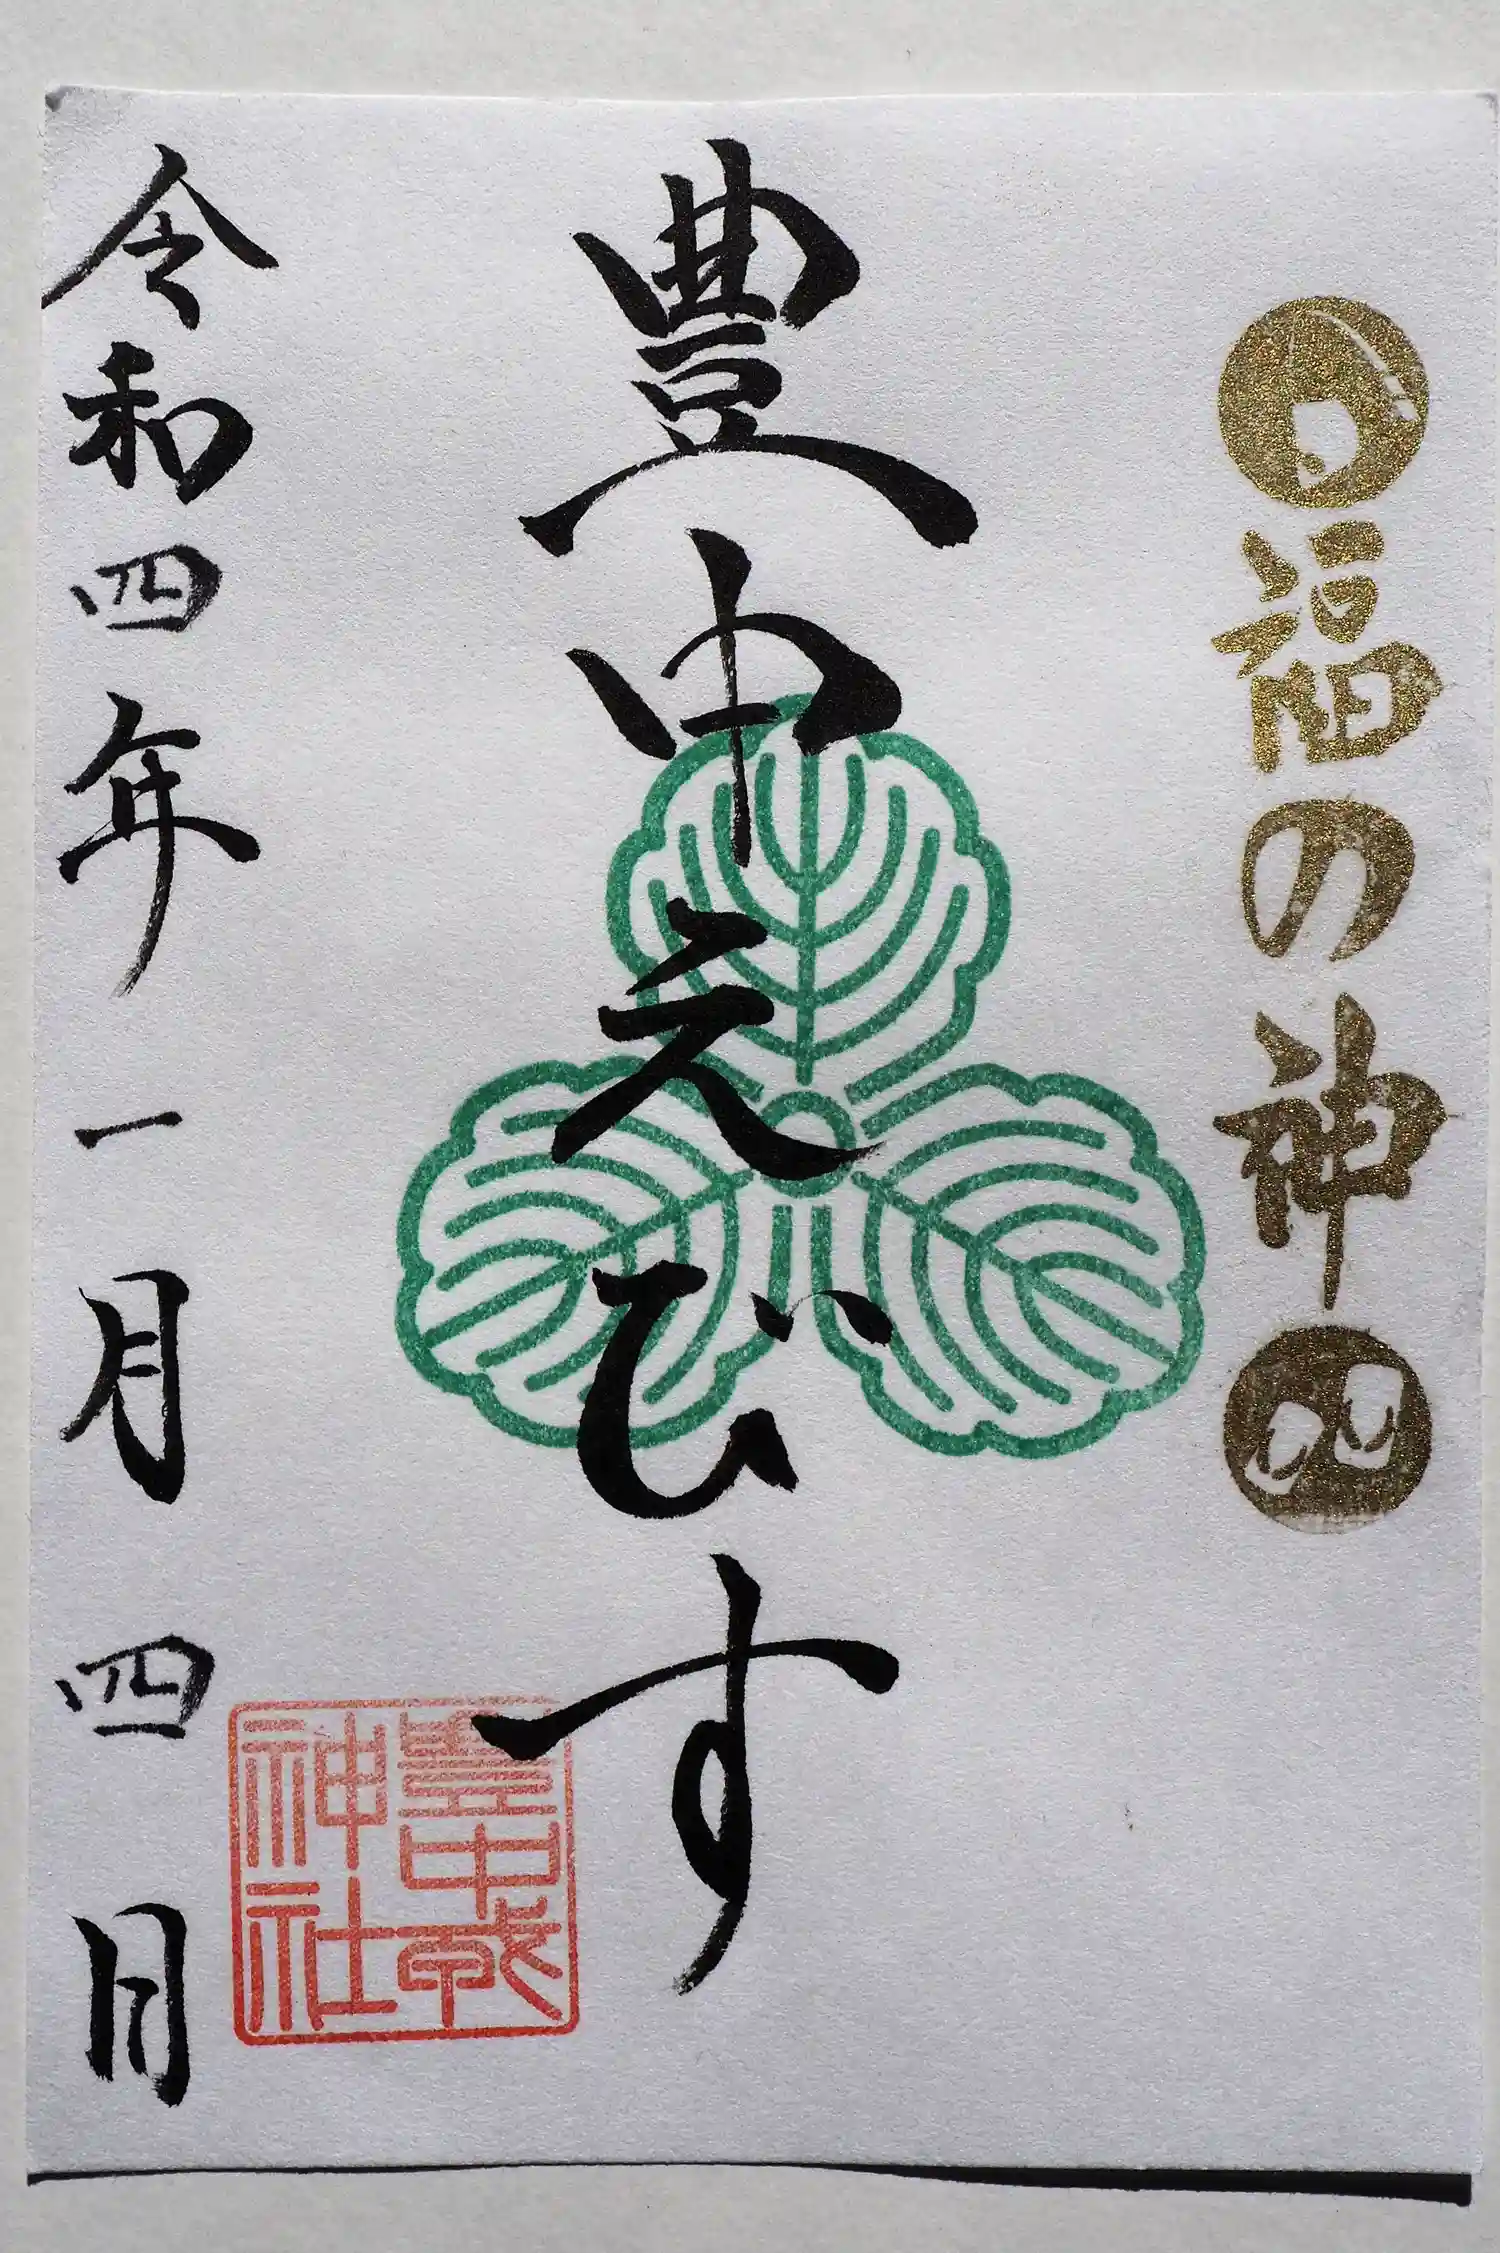 福の神
豊中えびす
豊中戎
神社
令和四年一月四日